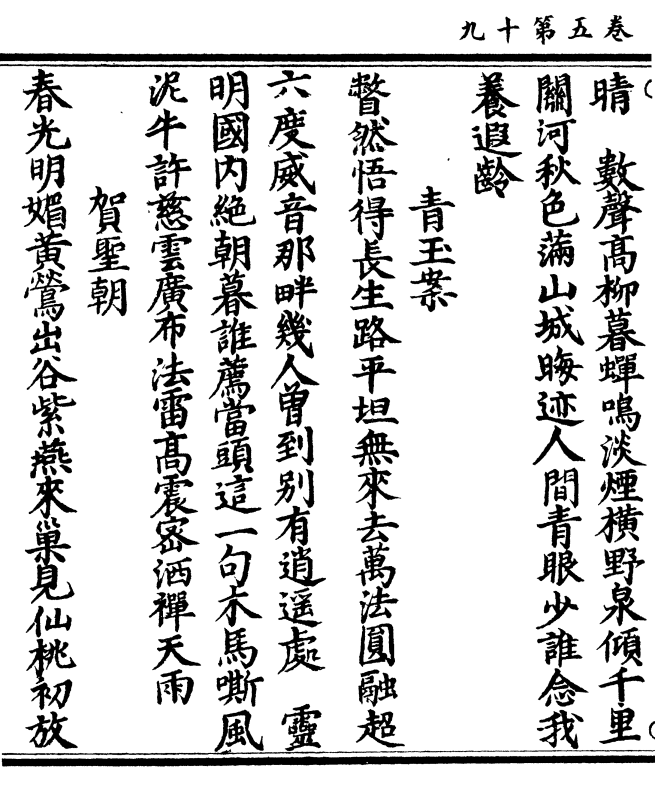 卷五第十九
晴　數聲高柳暮蟬鳴淡煙橫野泉傾千里
關河秋色滿山城晦迹人間青眼少誰念我
養遐齡
青玉案
瞥然悟得長生路平坦無來去萬法圓融超
六度威音那畔幾人曾到别有逍遥處　靈
明國内絶朝暮誰薦當頭這一句木馬嘶風
泥牛許慈雲廣布法雷高震密洒禪天雨
賀聖朝
春光明媚黃鶯出谷紫燕來巢見仙桃初放